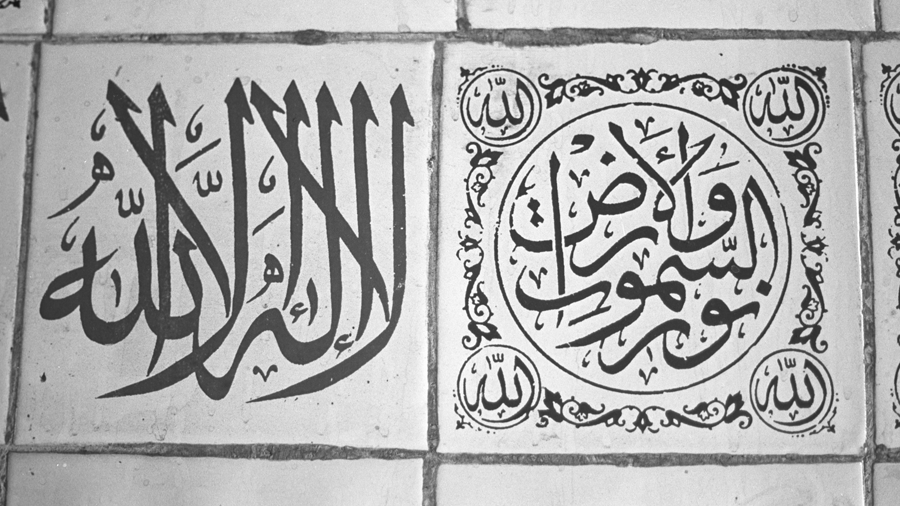 الله
الله
نور
السموت
والأرض
الله
الله
لا إله إلا الله